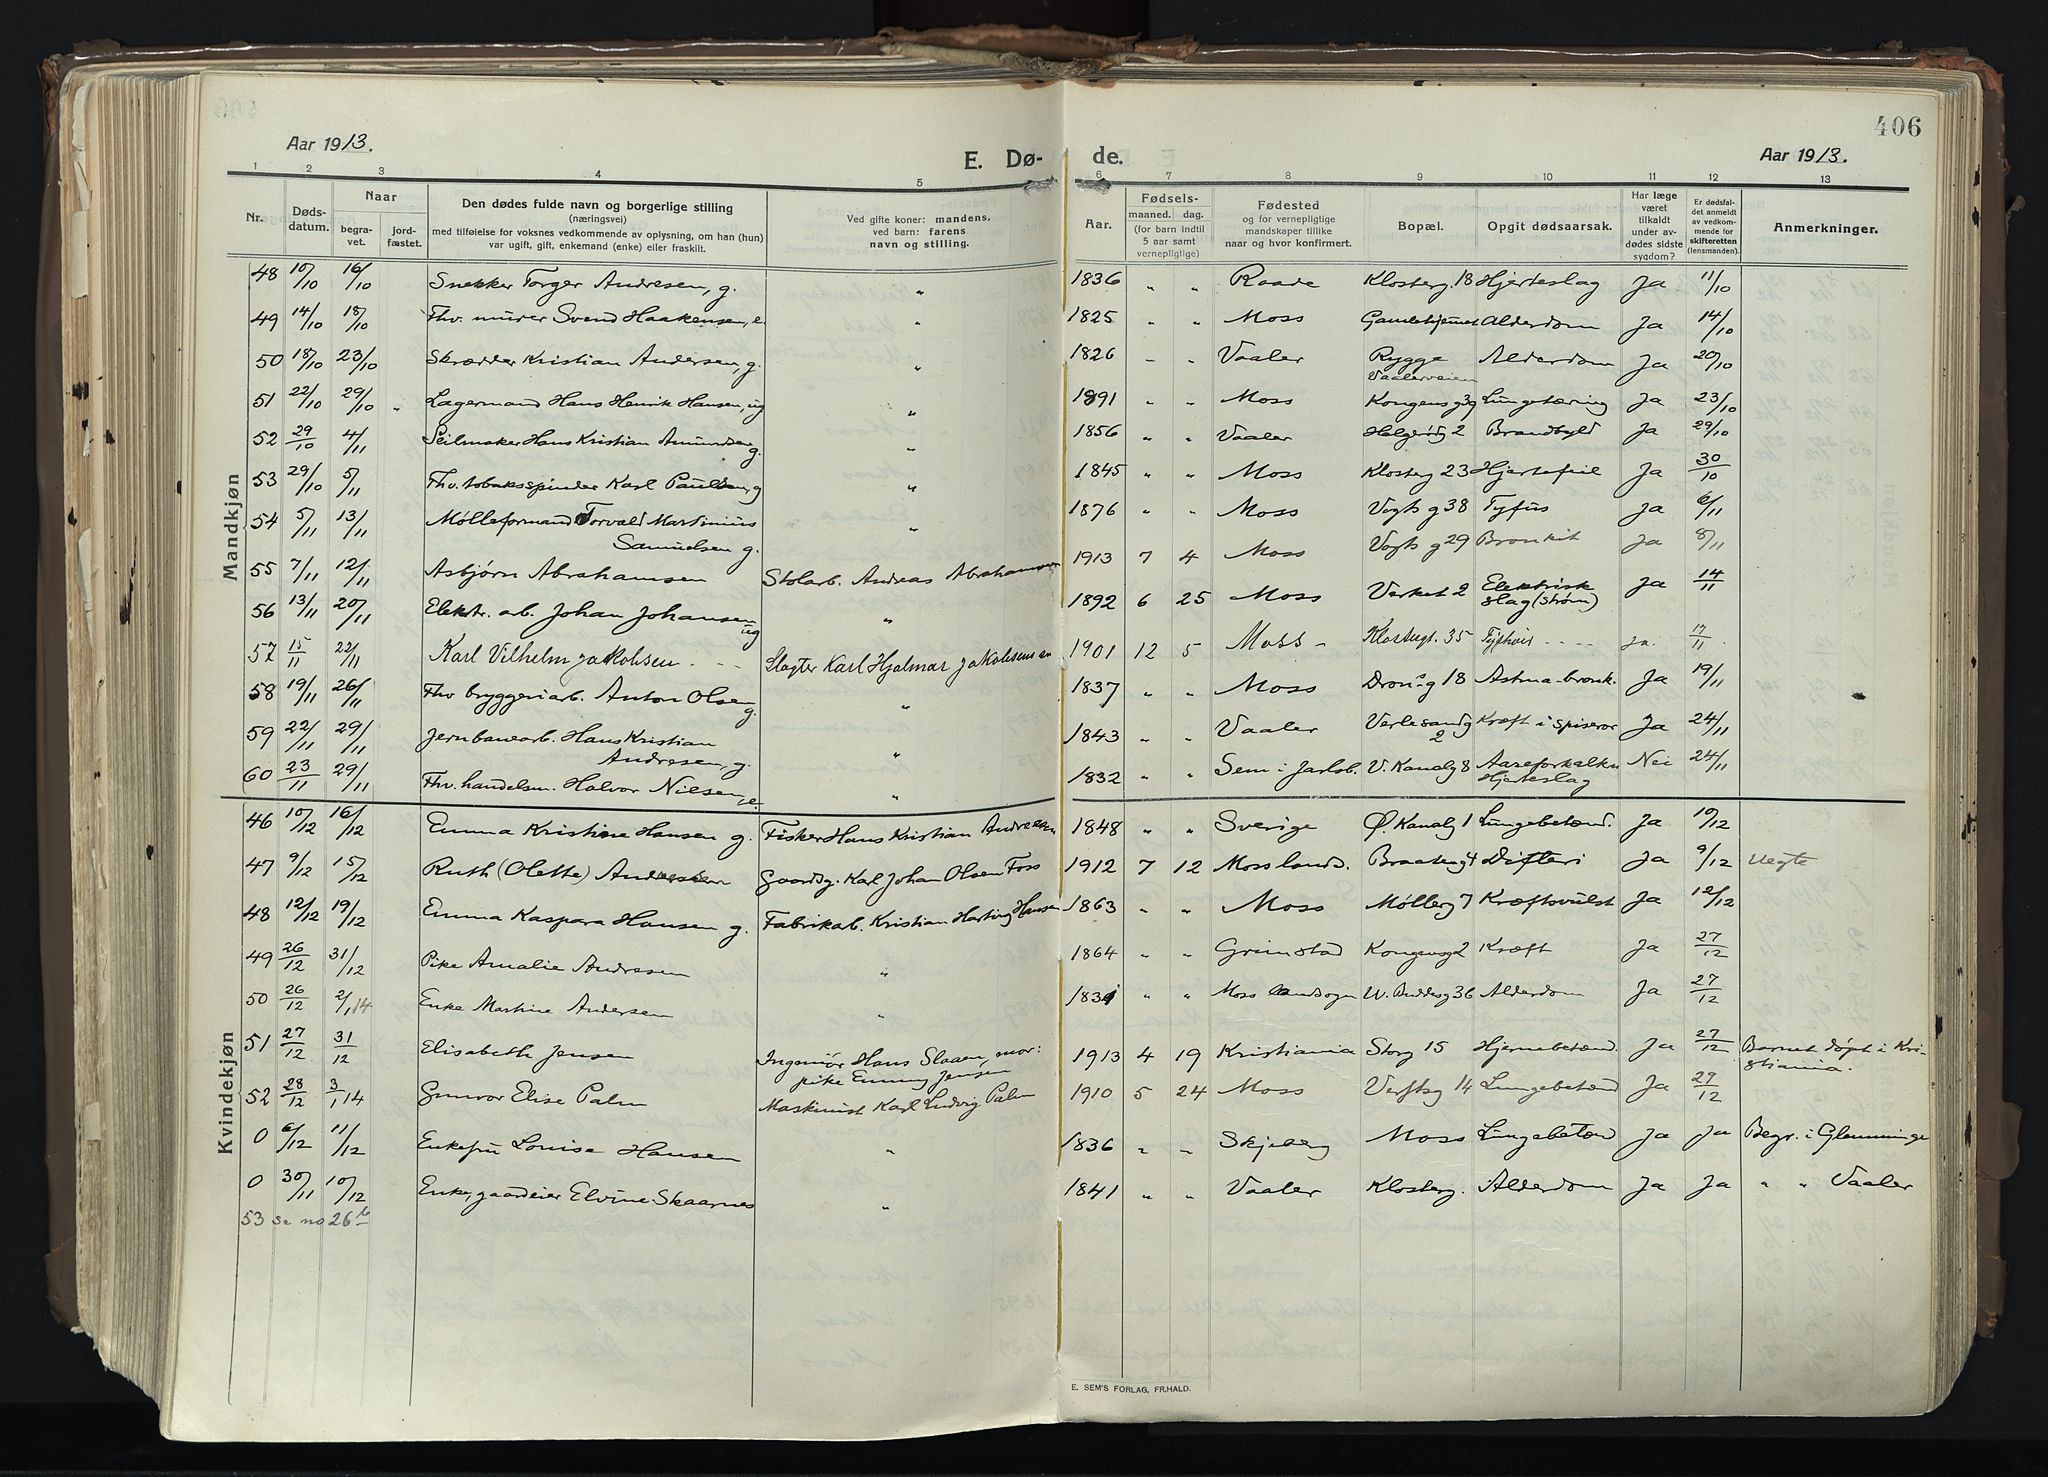 406
Aar 1913.
E. Dø-
de.
Aar 1913.
1 2 3 4 5 6 7 8 9 10 11 12 13
Nr.
Døds-
datum.
Naar
begra-
vet.
jord-
fæstet.
Den dødes fulde navn og borgerlige stilling
(næringsvei)
med tilføielse for voksnes vedkommende av oplysning, om han (hun)
var ugift, gift, enkemand (enke) eller fraskilt.
Ved gifte koner: mandens,
ved barn: farens
navn og stilling.
Aar.
Fødsels-
maaned. dag.
(for barn indtil
5 aar samt
vernepligtige)
Fødested
og for vernepligtige
mandskaper tillike
naar og hvor konfirmert.
Bopæl.
Opgit dødsaarsak.
Har læge
været
tilkaldt
under av-
dødes sidste
sygdom?
Er dødsfal-
det anmeldt
av vedkom-
mende for
skifteretten
(lensmanden).
Anmerkninger.
Mandkjøn
48 10/10 16/10 Snekker Torger Andresen, g. " 1836 " " Raade Klosterg. 18 Hjerteslag Ja 11/10
49 14/10 18/10 Fhv. murer Svend Haakensen, e. " 1825 " " Moss Gamlehjemet Alderdom Ja 14/10
50 18/10 23/10 Skrædder Kristian Andersen, g. " 1826 - " Vaaler Rygge Alderdom Ja 20/10
Vaalerveien
51 22/10 29/10 " Lagermand Hans Henrik Hansen, ug " 1891 " " Moss Kongensg 39 Lungetæring Ja 23/10
52 29/10 4/11 Seilmaker Hans Kristian Amundsen g. " 1856 " " Vaaler Helgerødg 2 Brandbyld Ja 29/10
53 29/10 5/11 Fhv. tobaksspinder Karl Paulsen g " 1845 " " Moss Klosterg 23 Hjertefeil Ja 30/10
54 5/11 13/11 Mølleformand Torvald Martinius " 1876 " " Moss Vogts g 38 Tyfus Ja 6/11
Samuelsen g.
55 7/11 12/11 Asbjørn Abrahamsen Stolarb. Andreas Abrahamsen 1913 7 4 Moss Vogts g 29 Bronkit Ja 8/11
56 13/11 20/11 Elektr. arb. Johan Johansen ug " 1892 6 25 Moss Verket 2 Elektrisk Ja 14/11
slag (strøm)
57 15/11 22/11 Karl Vilhelm Jakobsen - - - Slagter Karl Hjalmar Jakobsen 1901 12 5 Moss - Klostergt. 35 - - - - ja. 17/11
58 19/11 26/11 Fhv bryggeriarb. Anton Olsen g. " 1837 " " Moss Drons g 18 Astma-bronk. Ja 19/11
59 22/11 29/11 Jernbanearb. Hans Kristian " 1843 " " Vaaler Verlesandg Kræft i spiserør Ja 24/11
Andresen, g. 2
60 23/11 29/11 Fhv. handelsm. Halvor Nilsen, e. " 1832 " " Sem i Jarlsb. V. Kanalg 8 Aareforkalkn Nei 24/11
Hjerteslag
Kvindekjøn
46 10/12 16/12 Emma Kristine Hansen g. Fisker Hans Kristian Andresen 1848 " " Sverige Ø. Kanalg 1 Lungebetænd. Ja 10/12
47 9/12 15/12 Ruth (Olette) Andresen Gaardsg. Karl Johan Olsen Foss 1912 7 12 Moss lands. Braateng 4 Difteri Ja 9/12 Uegte
48 12/12 19/12 Emma Kaspara Hansen g. Fabrikarb. Kristian Hartvig Hansen 1863 " " Moss Mølleg 7 Kræftsvulst Ja 12/12
49 26/12 31/12 Pike Amalie Andresen " 1864 " " Grimstad Kongensg 2 Kræft Ja 27/12
50 26/12 2/1 14 Enke Martine Andersen " 1831 " " Moss landsogn W. Buddesg 36 Alderdom Ja 27/12
51 27/12 31/12 Elisabeth Jensen Ingeniør Hans Slaaen, mor: 1913 4 19 Kristiania Storg 15 Hjernebetænd. Ja 27/12 Barnet døpt i Kri-
pike Emmy Jensen stiania.
52 28/12 3/1 14 Gunvor Elise Palm Maskinist Karl Ludvig Palm 1910 5 24 Moss Verftsg 14 Lungebetænd Ja 29/12
0 6/12 11/12 Enkefru Louise Hansen " 1836 " " Skjeberg Moss Lungebetænd Ja Ja Begr. i Glemminge
0 30/11 10/12 Enke, gaardeier Elvine Skaarnes " 1841 " " Vaaler Klosterg. Alderdom Ja Ja " " Vaaler
53 se no 26 b
E. SEM'S FORLAG, FR.HALD.